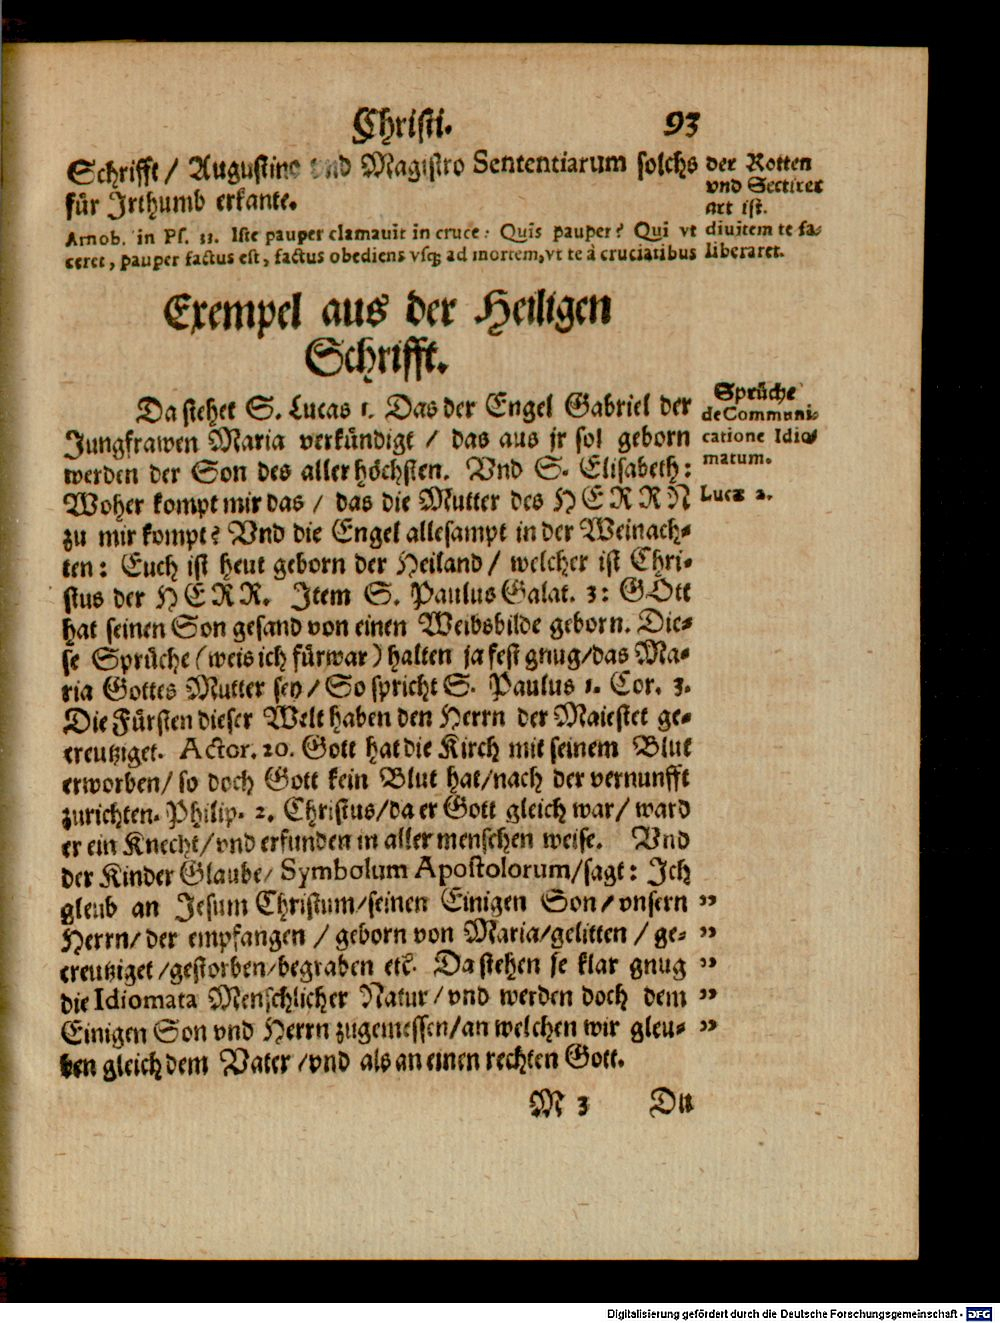 Christi. 93
Schrifft / Augustino vnd Magistro Sententiarum solchs
für Irthumb erkante.
der Rotten
vnd Sectirer
art ist.
Arnob. in Ps. 33. Iste pauper clamavit in cruce: Quis pauper? Qui vt divitem te fa-
ceret, pauper factus est, factus obediens vsq; ad mortem, vt te à cruciatibus liberaret.
Exempel aus der Heiligen
Schrifft.
Da stehet S. Lucas 1. Das der Engel Gabriel der
Jungfrawen Maria verkündigt / das aus jr sol geborn
werden der Son des allerhöchsten. Vnd S. Elisabeth:
Woher kompt mir das / das die Mutter des HERRN
zu mir kompt? Vnd die Engel allesampt in der Weinach-
ten: Euch ist heut geborn der Heiland / welcher ist Chri-
stus der HERR. Item S. Paulus Galat. 3: GOtt
hat seinen Son gesand von einen Weibsbilde geborn. Die-
se Sprüche (weis ich fürwar) halten ja fest gnug/das Ma-
ria Gottes Mutter sey / So spricht S. Paulus 1. Cor. 3.
Die Fürsten dieser Welt haben den Herrn der Maiestet ge-
creutziget. Actor. 20. Gott hat die Kirch mit seinem Blut
erworben/ so doch Gott kein Blut hat/nach der vernunfft
zurichten. Philip. 2. Christus/da er Gott gleich war/ ward
er ein Knecht/vnd erfunden in aller menschen weise. Vnd
der Kinder Glaube/ Symbolum Apostolorum/sagt: Ich
gleub an Jesum Christum/seinen Einigen Son/vnsern „
Herrn/der empfangen / geborn von Maria/gelitten / ge- „
creutziget /gestorben/begraben etc. Da stehen je klar gnug „
die Idiomata Menschlicher Natur/vnd werden doch dem „
Einigen Son vnd Herrn zugemessen/an welchen wir gleu- „
ben gleich dem Vater /vnd als an einen rechten Gott.
Sprüche
de Communi-
catione Idio-
matum.
Lucæ 2.
M 3 Du
Digitalisierung gefördert durch die Deutsche Forschungsgemeinschaft - DFG